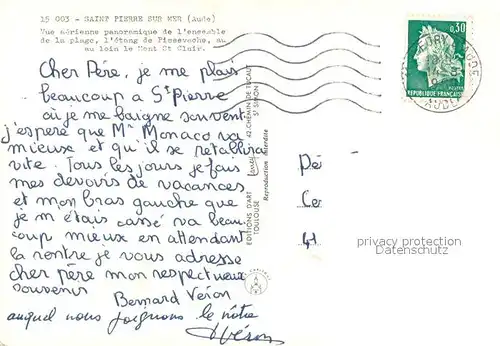 15 003 - SAINT PIERRE SUR MER (Aude)
Vue aérienne panoramique de l'ensemble
de la plage, l'étang de Pissevache, au
au loin le Mont St Clair.
Cher Père, je me plais
beaucoup a St Pierre
où je me baigne souvent
j'espere que Mr Monaco va
mieux et qu'il se retablira
vite. Tous les jours je fais
mes devoirs de vacances
et mon bras gauche que
je m'étais cassé va beau
coup mieux en attendant
la rentre je vous adresse
cher père mon respectueux
souvenir
Bernard Véron
auquel nous joignons le nôtre
Véron
EDITIONS D'ART
TOULOUSE
42, CHEMIN DE TUCAUT
ST SIMON
Reproduction interdite
0,30
REPUBLIQUE FRANÇAISE
AUDE
Pé
Ce
41
privacy protection
Datenschutz